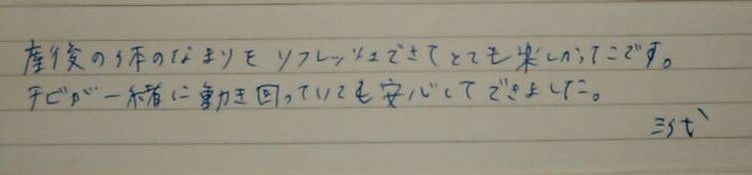 産後の体のなまりもリフレッシュできてとても楽しかったです。
チビが一緒に動き回っていても安心してできました。